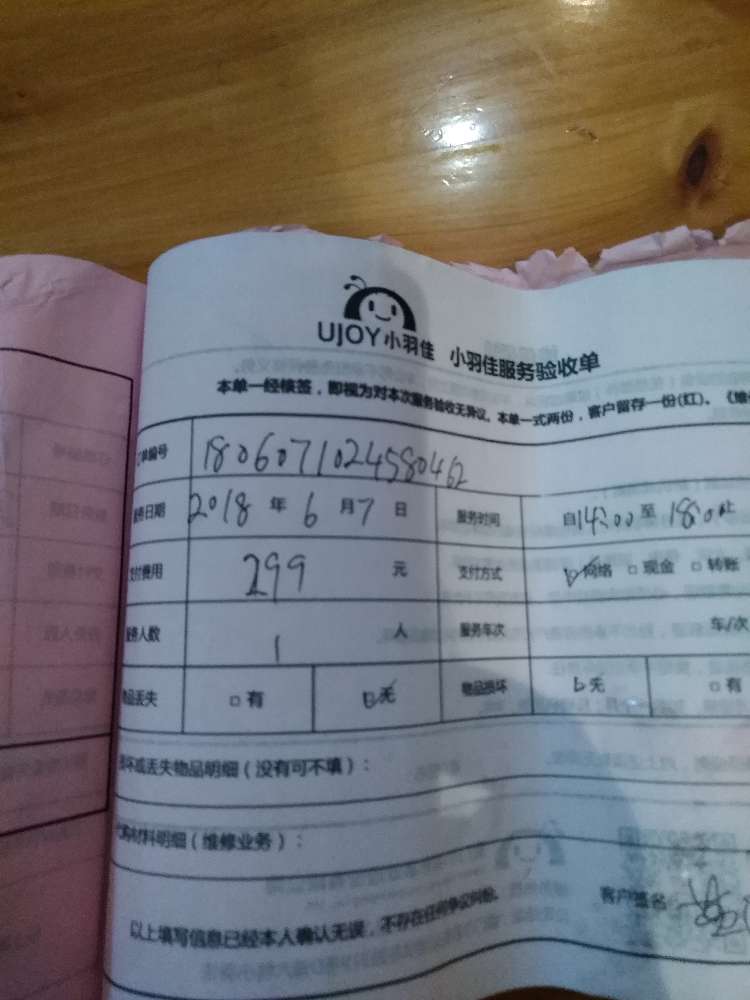 UJOY小羽佳 小羽佳服务验收单
本单一经核签，即视为对本次服务验收无异议。本单一式两份，客户留存一份(红)。《维
订单编号 1806071024580462
服务日期 2018 年 6 月 7 日 服务时间 自14:00 至 18:00止
支付费用 299 元 支付方式 网络 □ 现金 □ 转账
服务人数 1 人 服务车次 车/次
物品丢失 □ 有 无 物品损坏 无 □ 有
损坏或丢失物品明细（没有可不填）：
材料明细（维修业务）：
以上填写信息已经本人确认无误，不存在任何争议纠纷。 客户签名